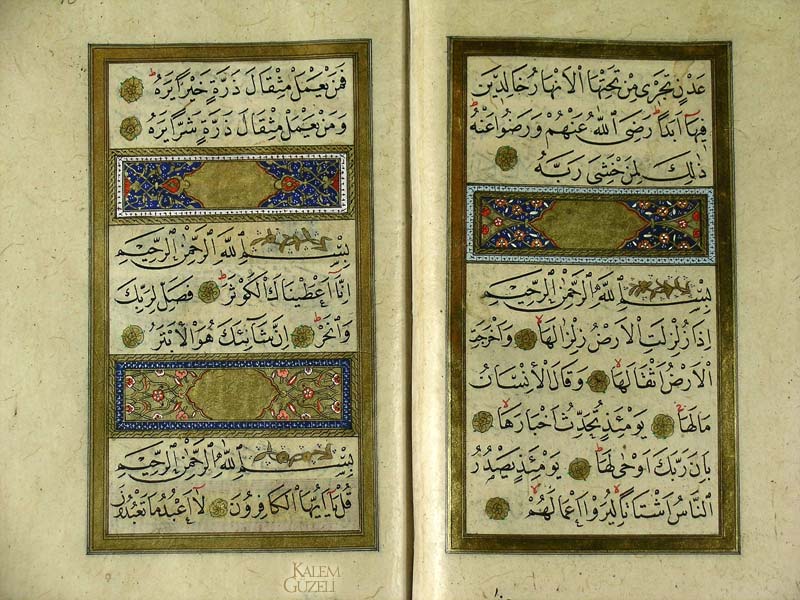 عَدْنٍ تَجْرِى مِنْ تَحْتِهَا الْاَنْهَارُ خَالِدٖينَ
فٖيهَا اَبَدًا رَضِىَ اللّٰهُ عَنْهُمْ وَرَضُوا عَنْهُ
ذٰلِكَ لِمَنْ خَشِىَ رَبَّهُ
بِسْمِ اللّٰهِ الرَّحْمٰنِ الرَّحٖيمِ
اِذَا زُلْزِلَتِ الْاَرْضُ زِلْزَالَهَا وَاَخْرَجَتِ
الْاَرْضُ اَثْقَالَهَا وَقَالَ الْاِنْسَانُ
مَالَهَا يَوْمَئِذٍ تُحَدِّثُ اَخْبَارَهَا
بِاَنَّ رَبَّكَ اَوْحٰى لَهَا يَوْمَئِذٍ يَصْدُرُ
النَّاسُ اَشْتَاتًا لِيُرَوْا اَعْمَالَهُمْ
فَمَنْ يَعْمَلْ مِثْقَالَ ذَرَّةٍ خَيْرًا يَرَهُ
وَمَنْ يَعْمَلْ مِثْقَالَ ذَرَّةٍ شَرًّا يَرَهُ
بِسْمِ اللّٰهِ الرَّحْمٰنِ الرَّحٖيمِ
اِنَّا اَعْطَيْنَاكَ الْكَوْثَرَ فَصَلِّ لِرَبِّكَ
وَانْحَرْ اِنَّ شَانِئَكَ هُوَ الْاَبْتَرُ
بِسْمِ اللّٰهِ الرَّحْمٰنِ الرَّحٖيمِ
قُلْ يَا اَيُّهَا الْكَافِرُونَ لَا اَعْبُدُ مَا تَعْبُدُونَ
KALEM
GÜZELİ